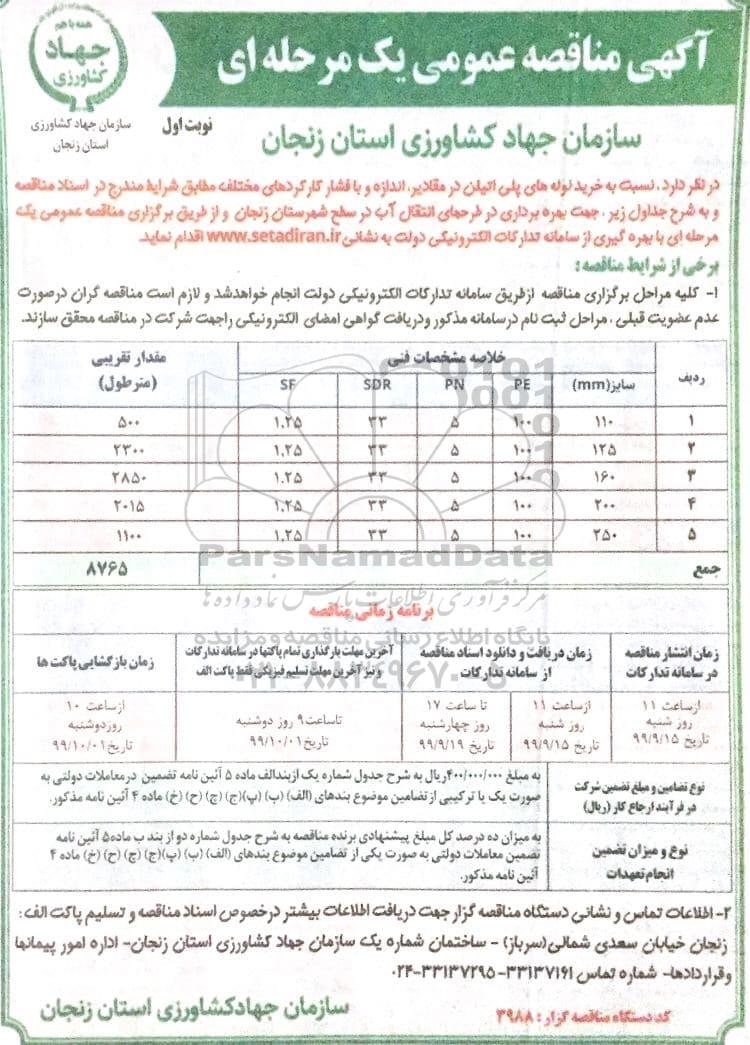 همه با هم
جهاد
کشاورزی
سازمان جهاد کشاورزی
استان زنجان
آگهی مناقصه عمومی یک مرحله ای
نوبت اول
سازمان جهاد کشاورزی استان زنجان
در نظر دارد ، نسبت به خرید لوله های پلی اتیلن در مقادیر، اندازه و با فشار کارکردهای مختلف مطابق شرایط مندرج در اسناد مناقصه
و به شرح جداول زیر ، جهت بهره برداری در طرحهای انتقال آب در سطح شهرستان زنجان و از طریق برگزاری مناقصه عمومی یک
مرحله ای با بهره گیری از سامانه تدارکات الکترونیکی دولت به نشانی www.setadiran.ir اقدام نماید.
برخی از شرایط مناقصه :
۱- کلیه مراحل برگزاری مناقصه ازطریق سامانه تدارکات الکترونیکی دولت انجام خواهدشد و لازم است مناقصه گران درصورت
عدم عضویت قبلی ، مراحل ثبت نام درسامانه مذکور ودریافت گواهی امضای الکترونیکی راجهت شرکت در مناقصه محقق سازند.
ردیف خلاصه مشخصات فنی مقدار تقریبی (مترطول)
سایز(mm) PE PN SDR SF
۱ ۱۱۰ ۱۰۰ ۵ ۳۳ ۱.۲۵ ۵۰۰
۲ ۱۲۵ ۱۰۰ ۵ ۳۳ ۱.۲۵ ۲۳۰۰
۳ ۱۶۰ ۱۰۰ ۵ ۳۳ ۱.۲۵ ۲۸۵۰
۴ ۲۰۰ ۱۰۰ ۵ ۳۳ ۱.۲۵ ۲۰۱۵
۵ ۲۵۰ ۱۰۰ ۵ ۳۳ ۱.۲۵ ۱۱۰۰
جمع ۸۷۶۵
ParsNamadData
مرکز فرآوری اطلاعات پارس نماد داده ها
برنامه زمانی مناقصه
پایگاه اطلاع رسانی مناقصه و مزایده
۰۲۱-۸۸۳۴۹۶۷۰-۵
زمان انتشار مناقصه
در سامانه تدارکات
زمان دریافت و دانلود اسناد مناقصه
از سامانه تدارکات
آخرین مهلت بارگذاری تمام پاکتها در سامانه تدارکات
و نیز آخرین مهلت تسلیم فیزیکی فقط پاکت الف
زمان بازگشایی پاکت ها
ازساعت ۱۱
روز شنبه
تاریخ ۹۹/۹/۱۵
ازساعت ۱۱
روز شنبه
تاریخ ۹۹/۹/۱۵
تا ساعت ۱۷
روز چهارشنبه
تاریخ ۹۹/۹/۱۹
تاساعت ۹ روز دوشنبه
تاریخ ۹۹/۱۰/۰۱
ازساعت ۱۰
روزدوشنبه
تاریخ ۹۹/۱۰/۰۱
نوع تضامین و مبلغ تضمین شرکت
در فرآیند ارجاع کار (ریال)
به مبلغ ۴۰۰/۰۰۰/۰۰۰ریال به شرح جدول شماره یک ازبندالف ماده ۵ آئین نامه تضمین درمعاملات دولتی به
صورت یک یا ترکیبی از تضامین موضوع بندهای (الف) (ب) (پ)(ج) (چ) (ح) (خ) ماده ۴ آئین نامه مذکور.
نوع و میزان تضمین
انجام تعهدات
به میزان ده درصد کل مبلغ پیشنهادی برنده مناقصه به شرح جدول شماره دو از بند ب ماده۵ آئین نامه
تضمین معاملات دولتی به صورت یکی از تضامین موضوع بندهای (الف) (ب) (پ)(ج) (چ) (ح) (خ) ماده ۴
آئین نامه مذکور.
۲- اطلاعات تماس و نشانی دستگاه مناقصه گزار جهت دریافت اطلاعات بیشتر درخصوص اسناد مناقصه و تسلیم پاکت الف :
زنجان خیابان سعدی شمالی(سرباز) - ساختمان شماره یک سازمان جهاد کشاورزی استان زنجان- اداره امور پیمانها
وقراردادها- شماره تماس ۳۳۱۳۷۱۶۱- ۳۳۱۳۷۲۹۵-۰۲۴
کد دستگاه مناقصه گزار : ۳۹۸۸
سازمان جهادکشاورزی استان زنجان